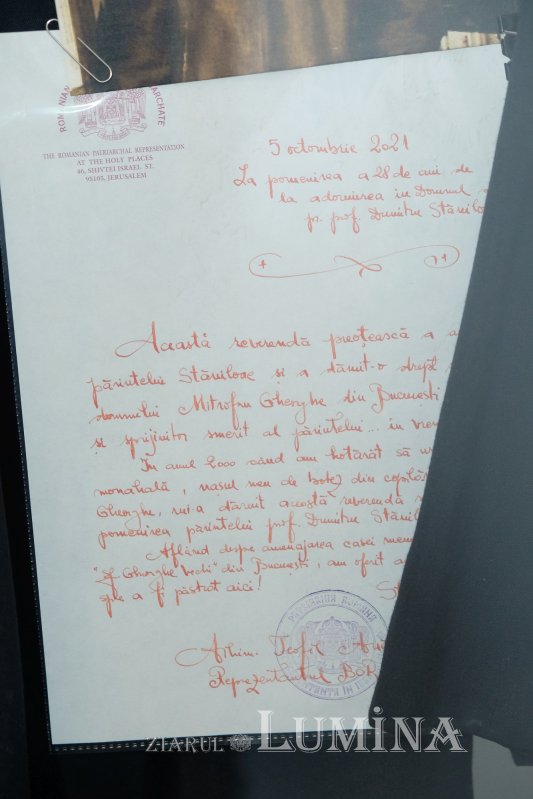 ROMANIAN
ARCHATE
THE ROMANIAN PATRIARCHAL REPRESENTATION
AT THE HOLY PLACES
46, SHIVTEI ISRAEL ST.
95105, JERUSALEM
5 octombrie 2021
La pomenirea a 28 de ani de
la adormirea in Domnul
pr. prof. Dumitru Stănilo
Această reverendă preoțească a a
părintelui Stăniloae și a dăruit-o drept
domnului Mitrofan Gheorghe din București
și sprijinitor smerit al părintelui... in vrem
În anul 2000 când am hotărât să ur
monahală, nașul meu de botez din copilăr
Gheorghe, mi-a dăruit această reverendă
pomenirea părintelui prof. Dumitru Stănilo
Aflând despre amenajarea casei mem
"Sf. Gheorghe Vechi" din București, am oferit a
spre a fi păstrat aici!
PATRIARHIA ROMÂNĂ
Arhim. Teofil
Reprezentantul BOR
ZIARUL LUMINA